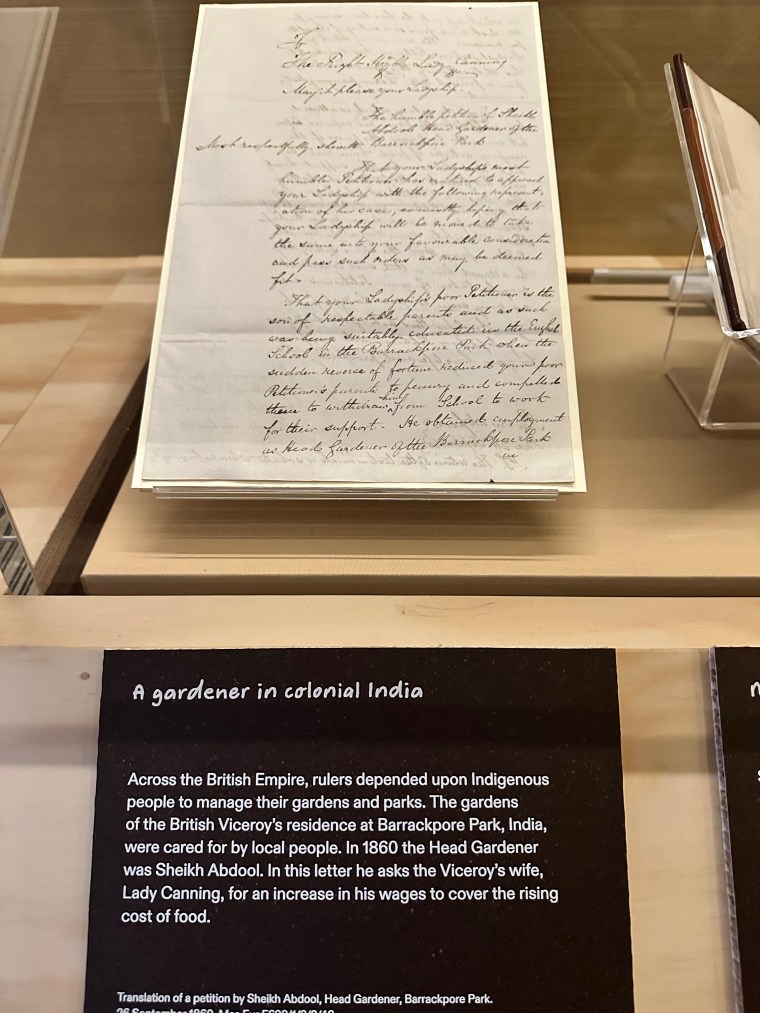 To
The Right Honble Lady Canning
May it please your Ladyship.
The humble petition of Sheikh
Abdool Head Gardener of the
Barrackpore Park
Most respectfully sheweth
That your Ladyship's most
humble Petitioner has ventured to approach
your Ladyship with the following represent-
ation of his case, earnestly hoping that
your Ladyship will be moved to take
the same into your favourable consideration
and pass such orders as may be deemed
fit.
That your Ladyship's poor Petitioner is the
son of respectable parents and as such
was being suitably educated in the English
School in the Barrackpore Park when the
sudden reverse of fortune reduced your poor
Petitioner's parents to penury and compelled
them to withdraw him from School to work
for their support. He obtained employment
as Head Gardener of the Barrackpore Park
in
A gardener in colonial India
Across the British Empire, rulers depended upon Indigenous
people to manage their gardens and parks. The gardens
of the British Viceroy's residence at Barrackpore Park, India,
were cared for by local people. In 1860 the Head Gardener
was Sheikh Abdool. In this letter he asks the Viceroy's wife,
Lady Canning, for an increase in his wages to cover the rising
cost of food.
Translation of a petition by Sheikh Abdool, Head Gardener, Barrackpore Park.
26 September 1860. Mss Eur